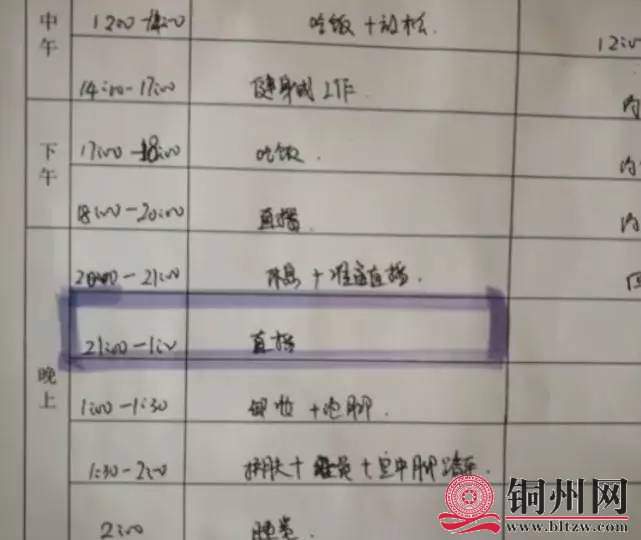 中午
12:00-14:00 吃饭+放松.
14:00-17:00 健身或工作
下午
17:00-18:00 吃饭.
18:00-20:00 直播.
晚上
20:00-21:00 休息+准备直播.
21:00-1:00 直播
1:00-1:30 卸妆+泡脚.
1:30-2:00 护肤+空中脚踏车.
2:00 睡觉
铜州网
www.bltzw.com